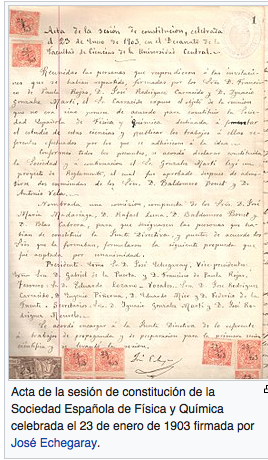 Acta de la sesión de constitución, celebrada
el 23 de Enero de 1903, en el Decanato de la
Facultad de Ciencias de la Universidad Central.
Reunidas las personas que respondieron á las invitacio-
nes que se habían repartido, formadas por los Sres. D. Francis-
co de Paula Rojas, D. José Rodríguez Carracido y D. Ignacio
González Martí, el Sr. Carracido expuso el objeto de la reunión
que no era otro que de acuerdo para constituir la Socie-
dad Española de Física y Química dedicada á
el estudio de estas ciencias y publicar los trabajos á ellas re-
Conformes todos los presentes, se acordó declarar constituida
la Sociedad y á continuación el Sr. González Martí leyó un
proyecto de Reglamento, el cual fué aprobado después de admi-
tirse dos enmiendas de los Sres. D. Baldomero Bonet y D.
Antonio Vela.
Nombrada una comisión, compuesta de los Sres. D. José
María Madariaga, D. Rafael Luna, D. Baldomero Bonet y
D. Blas Cabrera, para que designasen las personas que ha-
bían de constituir la Junta Directiva, y puestos de acuerdo los
Sres. que la formaban, formularon la siguiente propuesta que
fué aceptada por unanimidad:
Presidente: Excmo. Sr. D. José Echegaray. Vicepresidentes:
Sres. D. Gabriel de la Puerta y D. Francisco de Paula Rojas,
Tesorero: D. Eduardo Lozano. Vocales: Sres. D. José Rodríguez
Carracido, D. Eugenio Piñerua, D. Eduardo Mier y D. Federico de la
Fuente. Secretarios: Sres. D. Ignacio González Martí y D. José Ro-
dríguez Mourelo.
Se acordó encargar á la Junta Directiva de lo referente
á trabajos de propaganda y de preparación para la primera sesión
científica y se levantó la sesión.
José Echegaray
Acta de la sesión de constitución de la
Sociedad Española de Física y Química
celebrada el 23 de enero de 1903 firmada por
José Echegaray.